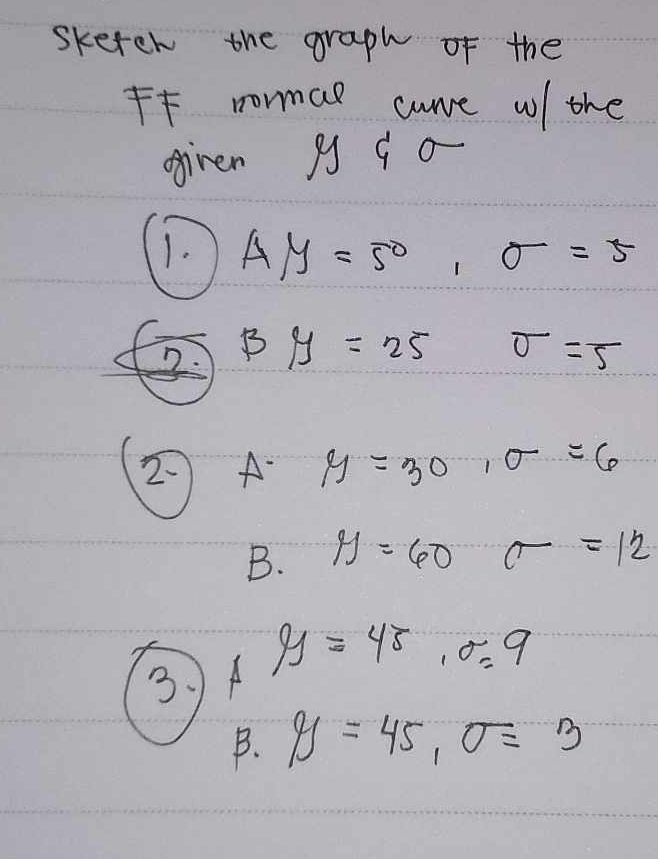 Sketch the graph of the
FF normal curve w/ the
given μ & σ
1. A μ = 50 , σ = 5
2. B μ = 25 σ = 5
2. A. μ = 30 , σ = 6
B. μ = 60 σ = 12
3. A μ = 45 , σ = 9
B. μ = 45 , σ = 3